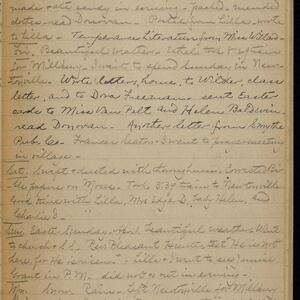 made ads. candy in evening - packed - mended
dates, read Donovan. - Postal from Lilla, wrote
to Lilla - Temperance Literature from Miss Willard
Fri. Beautiful weather - Ethel took train
for Millbury. I went to spend Sunday in New-
tonville. Wrote letters, home, to Wilder, class
letter, and to Dora Freeman - sent Easter
cards to Miss Van Pelt and Helen Baldwin.
read Donovan. Another letter from Smythe
Pub. Co. Frances Seaton & I went to prayer meeting
in village -
Sat. Swift -
papers on Mous - Took 3.39 train to Newtonville
Good time with Lilla, Mrs. Edge D. Lady Helen, and
Charlie D.
Sun. Easter Sunday, April, beautiful weather. Went
to church & S.S. "He is not
here, for He is risen" - Lilla & I went to see Jennie
Grant in P.M. did not go out in evening -
Mon. Snow - Rain - Left Newtonville for Millbury